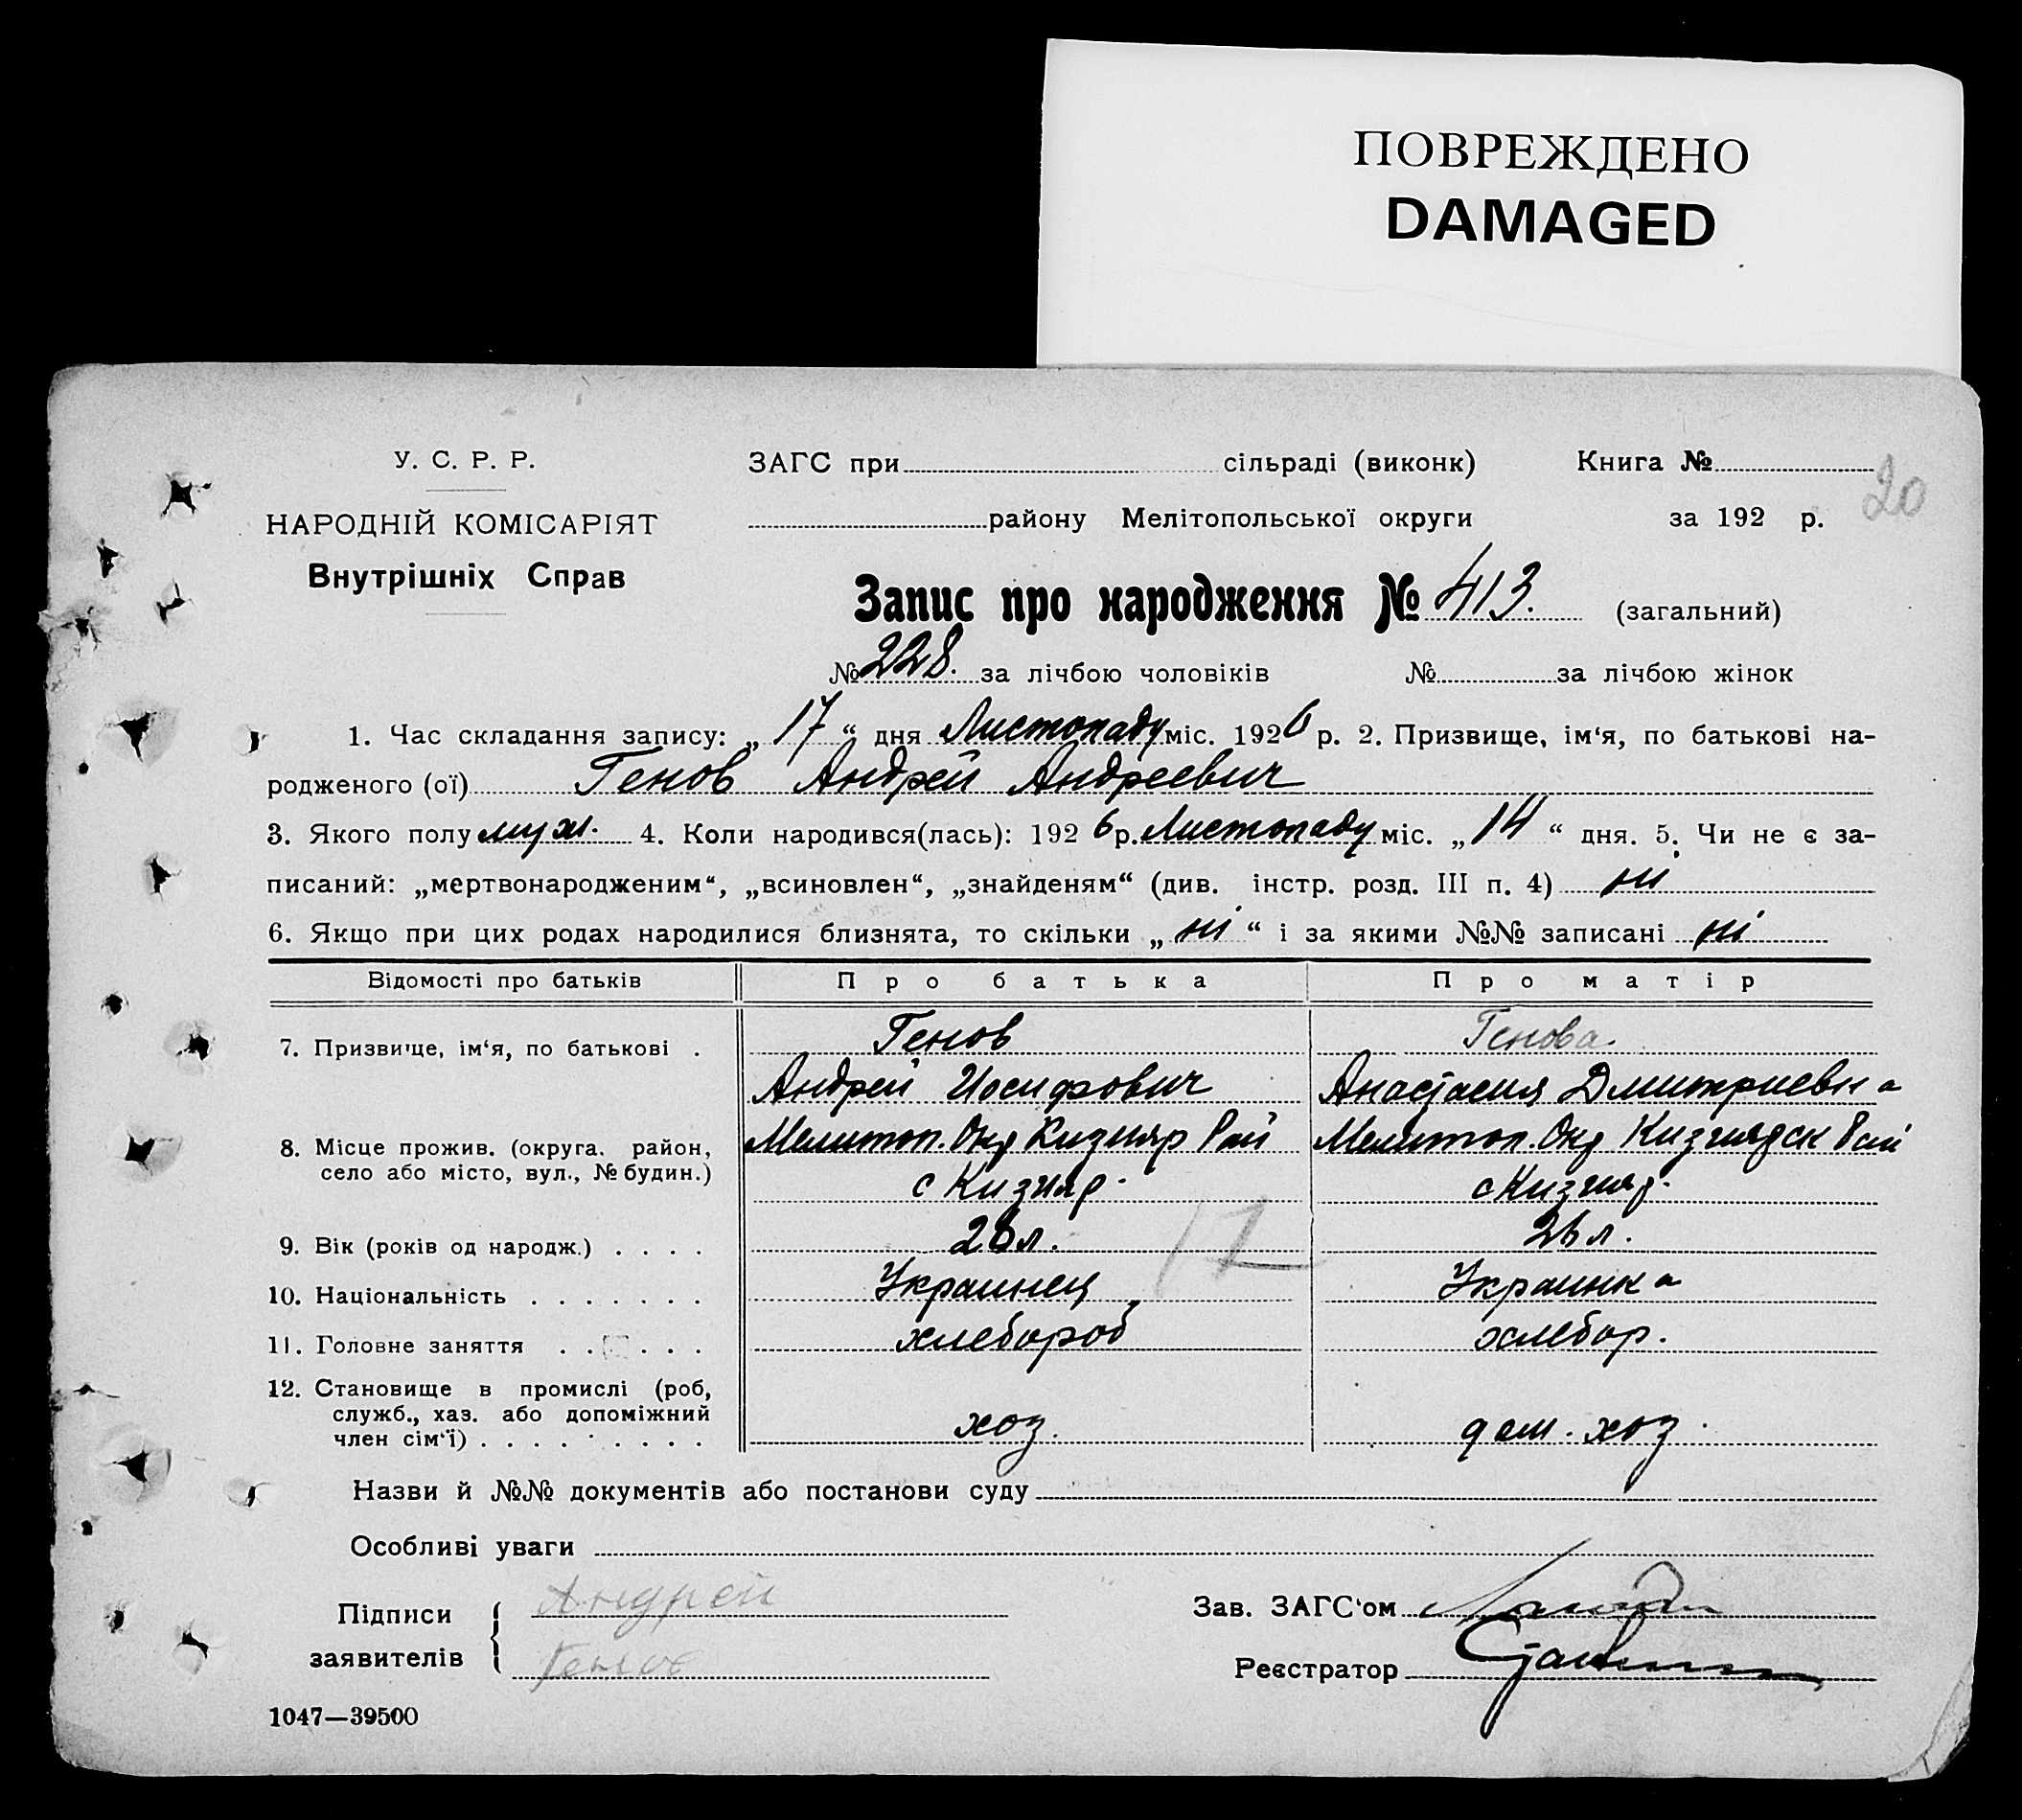 ПОВРЕЖДЕНО
DAMAGED
У. С. Р. Р.
НАРОДНІЙ КОМІСАРІЯТ
Внутрішніх Справ
ЗАГС при сільраді (виконк) Книга №
20
району Мелітопольської округи за 192 р.
Запис про народження № 413. (загальний)
№ 228. за лічбою чоловіків № за лічбою жінок
1. Час складання запису: „17“ дня Листопаду міс. 1926 р. 2. Призвище, ім‘я, по батькові на-
родженого (ої) Генов Андрей Андреевич
3. Якого полу муж. 4. Коли народився(лась): 1926 р. Листопаду міс. „14“ дня. 5. Чи не є за-
писаний: „мертвонародженим“, „всиновлен“, „знайденям“ (див. інстр. розд. III п. 4) ні
6. Якщо при цих родах народилися близнята, то скільки „ні“ і за якими №№ записані ні
Відомості про батьків Про батька Про матір
7. Призвище, ім‘я, по батькові . Генов Генова.
Андрей Иосифович Анастасия Дмитриевна
8. Місце прожив. (округа. район, Мелитоп. Окр Кизияр Рай Мелитоп. Окр Кизиярск Рай
село або місто, вул., № будин.) с Кизияр. с Кизияр.
9. Вік (років од народж.) . . . . л. 26 л.
17
10. Національність . . . . . . . Украинец Украинка
11. Головне заняття . . . . . хлебороб хлебор.
12. Становище в промислі (роб,
служб., хаз. або допоміжний
член сім‘ї) . . . . . . . . . хоз. дом. хоз.
Назви й №№ документів або постанови суду
Особливі уваги
Підписи Андрей
заявителів Генов
Зав. ЗАГС‘ом
Реєстратор
1047—39500